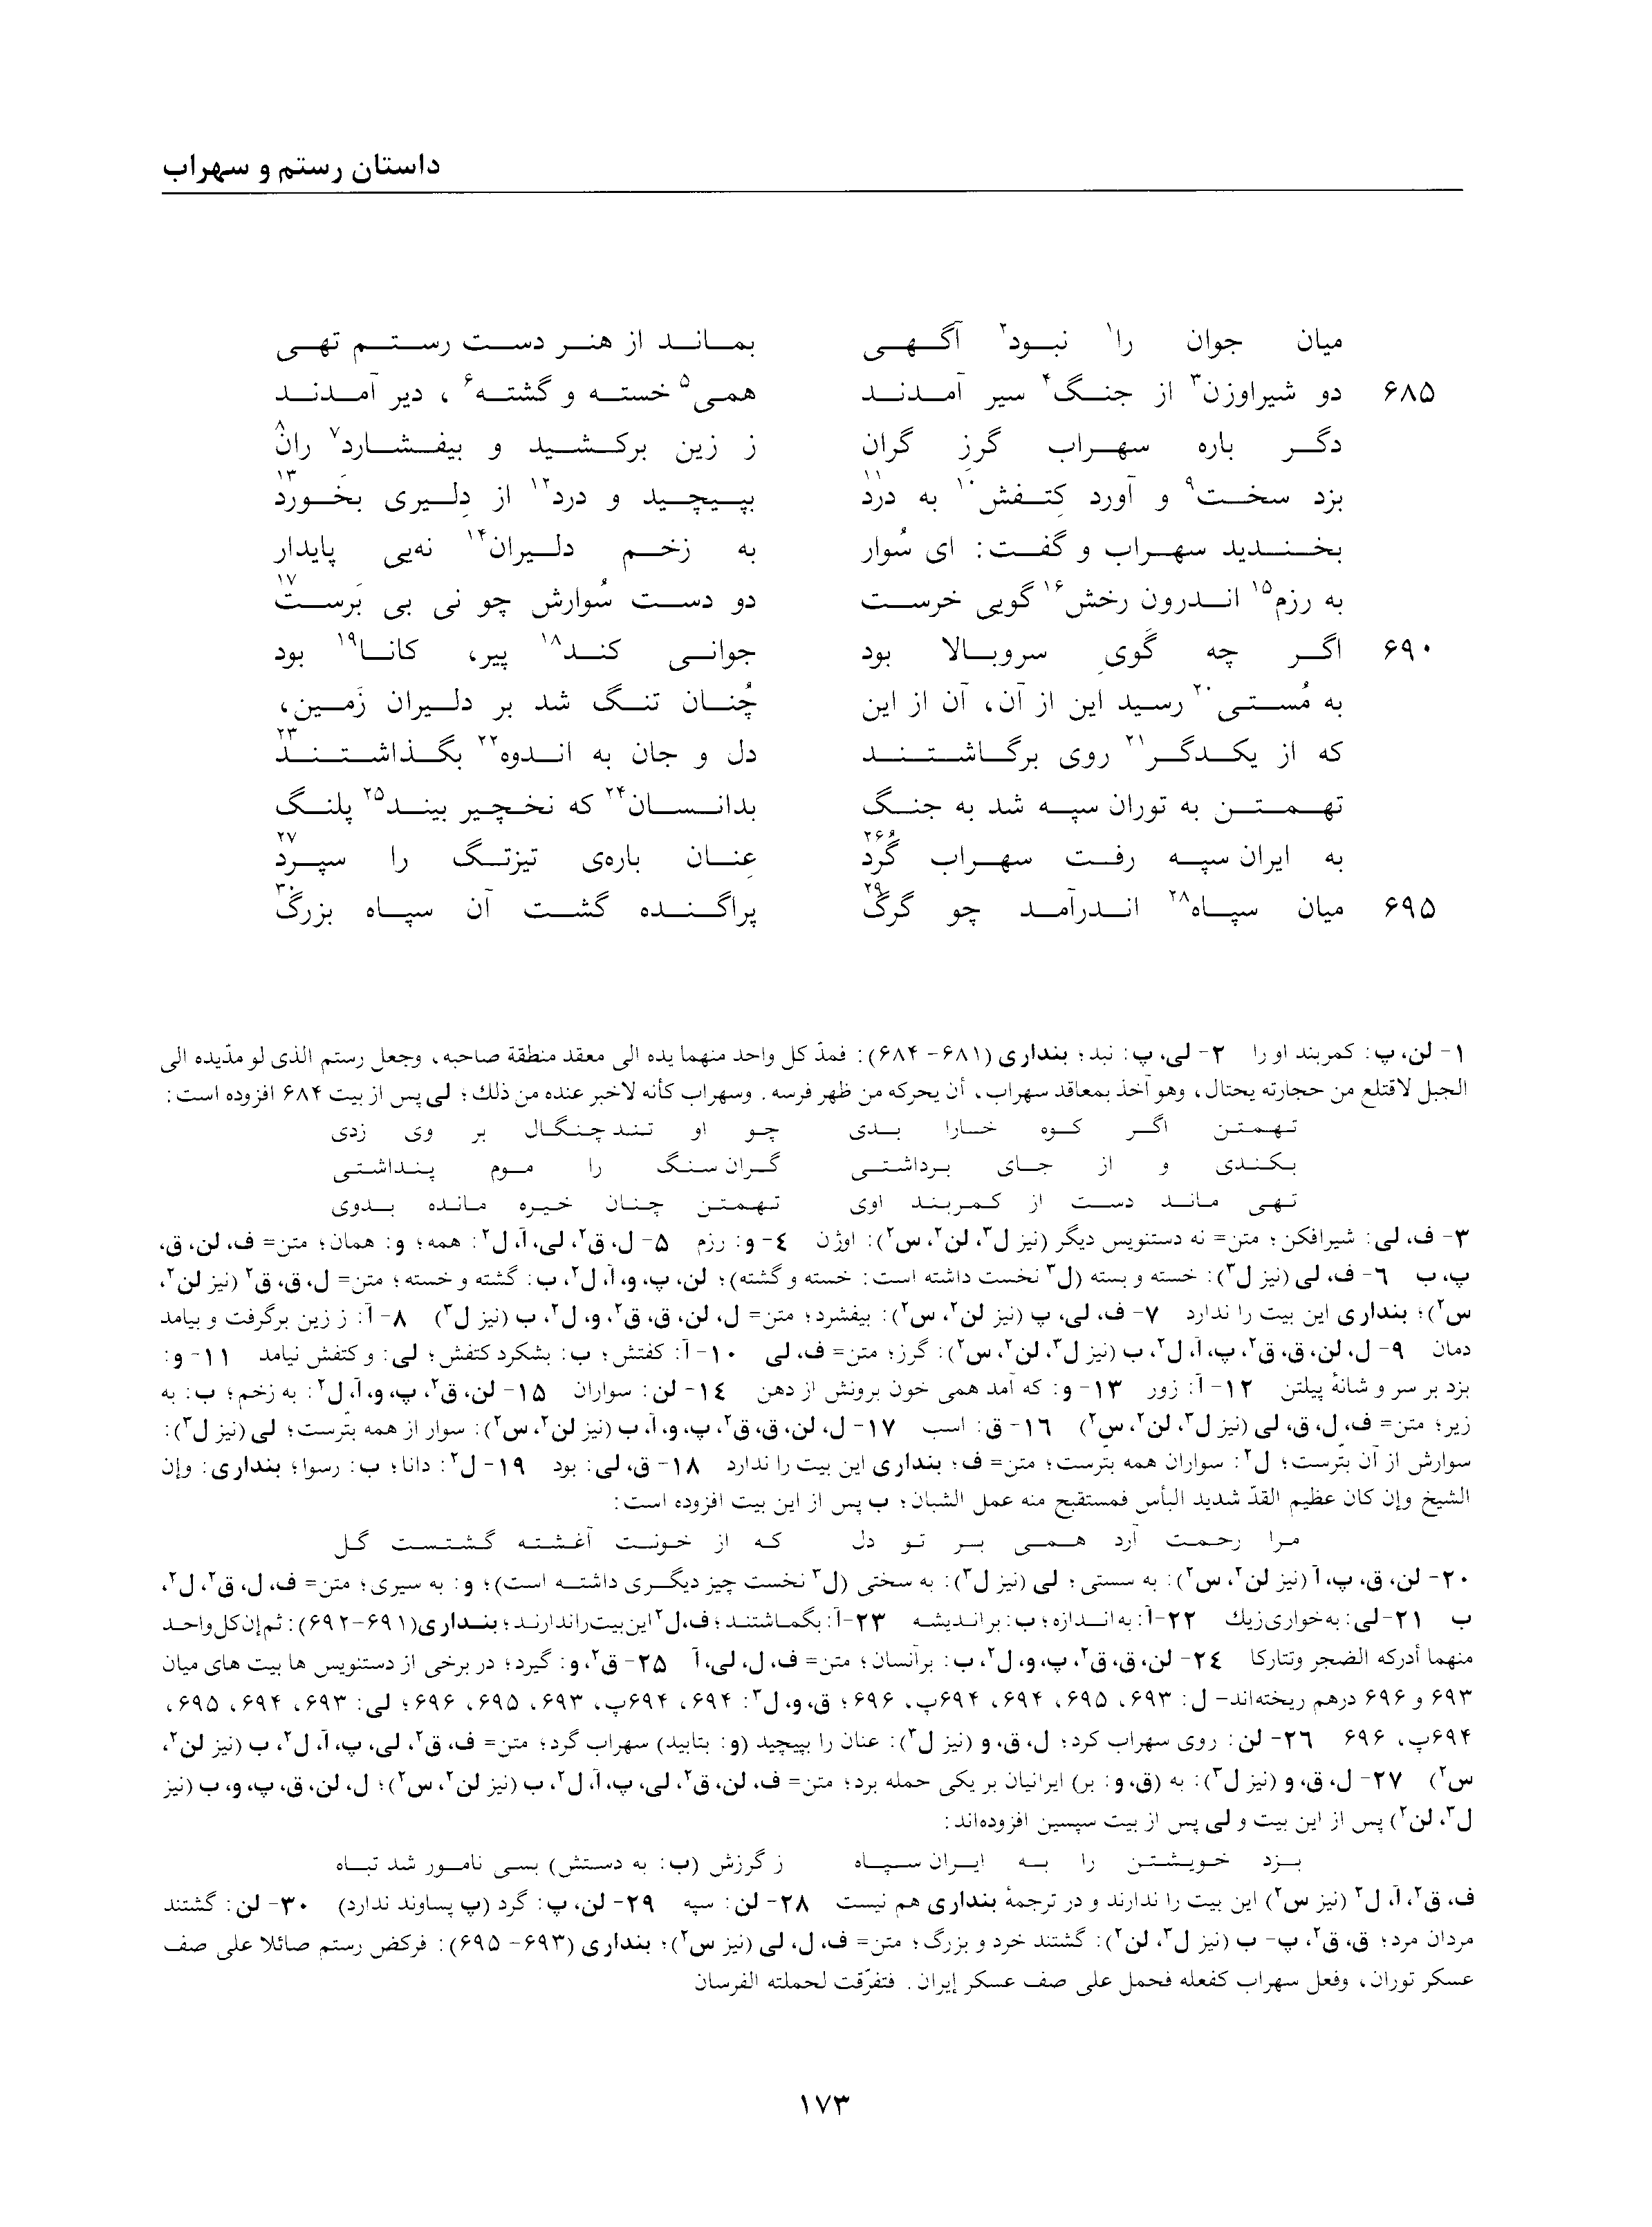 داستان رستم و سهراب
میان جوان را۱ نبود۲ آگهی بماند از هنر دست رستم تهی
۶۸۵ دو شیراوزن۳ از جنگ۴ سیر آمدند همی۵ خسته و گشته۶، دیر آمدند
دگر باره سهراب گرزِ گران ز زین برکشید و بیفشارد۷ ران۸
بزد سخت۹ و آورد کِتفش۱۰ به درد۱۱ بپیچید و درد۱۲ از دِلیری بخَورد۱۳
بخندید سهراب و گفت: ای سُوار به زخم دلیران۱۴ نه‌یی پایدار
به رزم۱۵ اندرون رخش۱۶ گویی خرست دو دست سُوارش چو نی بی بَرست۱۷
۶۹۰ اگر چه گَویِ سروبالا بود جوانی کند۱۸ پیر، کانا۱۹ بود
به مُستی۲۰ رسید این از آن، آن از این چُنان تنگ شد بر دلیران زَمین،
که از یکدگر۲۱ روی برگاشتند دل و جان به اندوه۲۲ بگذاشتند۲۳
تهمتن به توران سپه شد به جنگ بدانسان۲۴ که نخچیر بیند۲۵ پلنگ
به ایران سپه رفت سهراب گُرد۲۶ عِنان باره‌ی تیزتگ را سپرد۲۷
۶۹۵ میان سپاه۲۸ اندرآمد چو گرگ۲۹ پراگنده گشت آن سپاه بزرگ۳۰
۱- لن، پ: کمربند او را ۲- لی، پ: نبد؛ بنداری (۶۸۱- ۶۸۴): فمدّ کل واحد منهما یده الی معقد منطقة صاحبه، وجعل رستم الذی لو مدّیده الی
الجبل لاقتلع من حجارته یحتال، وهو آخذ بمعاقد سهراب، أن یحرکه من ظهر فرسه. وسهراب کأنه لاخبر عنده من ذلك؛ لی پس از بیت ۶۸۴ افزوده است:
تهمتن اگر کوه خسارا بدی چو او تند چنگال بر وی زدی
بکندی و از جای برداشتی گران سنگ را موم پنداشتی
تهی ماند دست از کمربند اوی تهمتن چنان خیره مانده بدوی
۳- ف، لی: شیرافکن؛ متن= نه دستنویس دیگر (نیز ل۳، لن۲، س۲): اوژن ۴- و: رزم ۵- ل، ق۲، لی، آ، ل۲: همه؛ و: همان؛ متن= ف، لن، ق،
پ، ب ۶- ف، لی (نیز ل۳): خسته و بسته (ل۳ نخست داشته است: خسته و گشته)؛ لن، پ، و، آ، ل۲، ب: گشته و خسته؛ متن= ل، ق، ق۲ (نیز لن۲،
س۲)؛ بنداری این بیت را ندارد ۷- ف، لی، پ (نیز لن۲، س۲): بیفشرد؛ متن= ل، لن، ق، ق۲، و، ل۲، ب (نیز ل۳) ۸- آ: ز زین برگرفت و بیامد
دمان ۹- ل، لن، ق، ق۲، پ، آ، ل۲، ب (نیز ل۳، لن۲، س۲): گرز؛ متن= ف، لی ۱۰- آ: کفتش؛ ب: بشکرد کتفش؛ لی: و کتفش نیامد ۱۱- و:
بزد بر سر و شانهٔ پیلتن ۱۲- آ: زور ۱۳- و: که آمد همی خون برونش از دهن ۱۴- لن: سواران ۱۵- لن، ق۲، پ، و، آ، ل۲: به زخم؛ ب: به
زیر؛ متن= ف، ل، ق، لی (نیز ل۳، لن۲، س۲) ۱۶- ق: اسب ۱۷- ل، لن، ق، ق۲، پ، و، آ، ب (نیز لن۲، س۲): سوار از همه بتّرست؛ لی (نیز ل۳):
سوارش از آن بتّرست؛ ل۲: سواران همه بتّرست؛ متن= ف؛ بنداری این بیت را ندارد ۱۸- ق، لی: بود ۱۹- ل۲: دانا؛ ب: رسوا؛ بنداری: وإن
الشیخ وإن کان عظیم القدّ شدید البأس فمستقبح منه عمل الشبان؛ ب پس از این بیت افزوده است:
مرا رحمت آرد همی بر تو دل که از خونت آغشته گشتست گل
۲۰- لن، ق، پ، آ (نیز لن۲، س۲): به سستی؛ لی (نیز ل۳): به سختی (ل۳ نخست چیز دیگری داشته است)؛ و: به سیری؛ متن= ف، ل، ق۲، ل۲،
ب ۲۱- لی: به خواری زیك ۲۲- آ: به اندازه؛ ب: براندیشه ۲۳- آ: بگماشتند؛ ف، ل۲ این بیت را ندارند؛ بنداری (۶۹۱-۶۹۲): ثم إن کل واحد
منهما أدرکه الضجر وتتارکا ۲۴- لن، ق، ق۲، پ، و، ل۲، ب: برآنسان؛ متن= ف، ل، لی، آ ۲۵- ق۲، و: گیرد؛ در برخی از دستنویس ها بیت های میان
۶۹۳ و ۶۹۶ درهم ریخته‌اند- ل: ۶۹۳، ۶۹۵، ۶۹۴، ۶۹۴پ، ۶۹۶؛ ق، و، ل۳: ۶۹۴، ۶۹۴پ، ۶۹۳، ۶۹۵، ۶۹۶؛ لی: ۶۹۳، ۶۹۴، ۶۹۵،
۶۹۴پ، ۶۹۶ ۲۶- لن: روی سهراب کرد؛ ل، ق، و (نیز ل۳): عنان را بپیچید (و: بتابید) سهراب گرد؛ متن= ف، ق۲، لی، پ، آ، ل۲، ب (نیز لن۲،
س۲) ۲۷- ل، ق، و (نیز ل۳): به (ق، و: بر) ایرانیان بر یکی حمله برد؛ متن= ف، لن، ق۲، لی، پ، آ، ل۲، ب (نیز لن۲، س۲)؛ ل، لن، ق، پ، و، ب (نیز
ل۳، لن۲) پس از این بیت و لی پس از بیت سپسین افزوده‌اند:
بزد خویشتن را به ایران سپاه ز گرزش (ب: به دستش) بسی نامور شد تباه
ف، ق۲، آ، ل۲ (نیز س۲) این بیت را ندارند و در ترجمهٔ بنداری هم نیست ۲۸- لن: سپه ۲۹- لن، پ: گرد (پ پساوند ندارد) ۳۰- لن: گشتند
مردان مرد؛ ق، ق۲، پ- ب (نیز ل۳، لن۲): گشتند خرد و بزرگ؛ متن= ف، ل، لی (نیز س۲)؛ بنداری (۶۹۳- ۶۹۵): فرکض رستم صائلا علی صف
عسکر توران، وفعل سهراب کفعله فحمل علی صف عسکر إیران. فتفرّقت لحملته الفرسان
۱۷۳